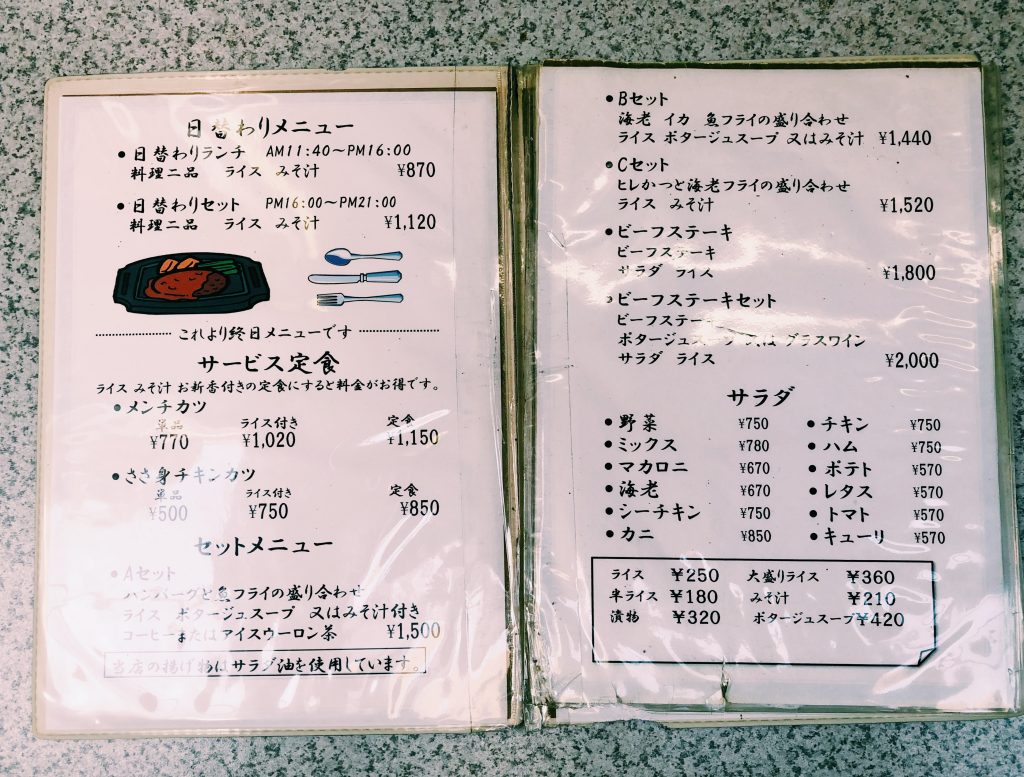 日替わりメニュー
●日替わりランチ AM11:40～PM16:00
料理二品 ライス みそ汁 ¥870
●日替わりセット PM16:00～PM21:00
料理二品 ライス みそ汁 ¥1,120
これより終日メニューです
サービス定食
ライス みそ汁 お新香付きの定食にすると料金がお得です。
●メンチカツ
単品 ライス付き 定食
¥770 ¥1,020 ¥1,150
●ささ身チキンカツ
単品 ライス付き 定食
¥500 ¥750 ¥850
セットメニュー
●Aセット
ハンバーグと魚フライの盛り合わせ
ライス ポタージュスープ 又はみそ汁付き
コーヒーまたはアイスウーロン茶 ¥1,500
当店の揚げ物はサラダ油を使用しています。
●Bセット
海老 イカ 魚フライの盛り合わせ
ライス ポタージュスープ 又はみそ汁 ¥1,440
●Cセット
ヒレかつと海老フライの盛り合わせ
ライス みそ汁 ¥1,520
●ビーフステーキ
ビーフステーキ
サラダ ライス ¥1,800
●ビーフステーキセット
ビーフステーキ
ポタージュスープ 又は グラスワイン
サラダ ライス ¥2,000
サラダ
●野菜 ¥750 ●チキン ¥750
●ミックス ¥780 ●ハム ¥750
●マカロニ ¥670 ●ポテト ¥570
●海老 ¥670 ●レタス ¥570
●シーチキン ¥750 ●トマト ¥570
●カニ ¥850 ●キューリ ¥570
ライス ¥250 大盛りライス ¥360
半ライス ¥180 みそ汁 ¥210
漬物 ¥320 ポタージュスープ ¥420